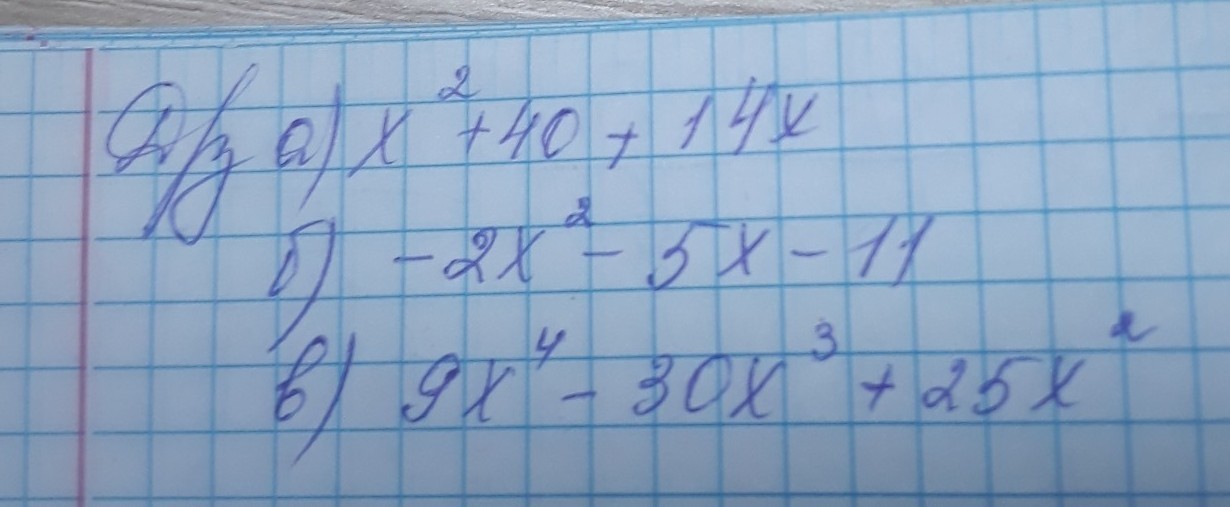 Д/з а) x² + 40 + 14x
б) -2x² - 5x - 11
в) 9x⁴ - 30x³ + 25x²